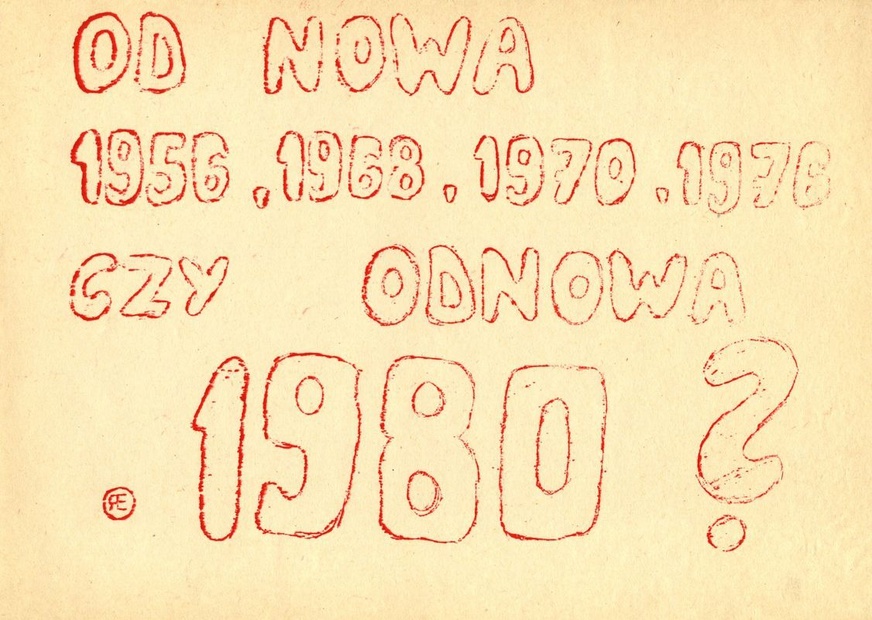 OD NOWA
1956 . 1968 . 1970 . 1976
CZY ODNOWA
. 1980 ?